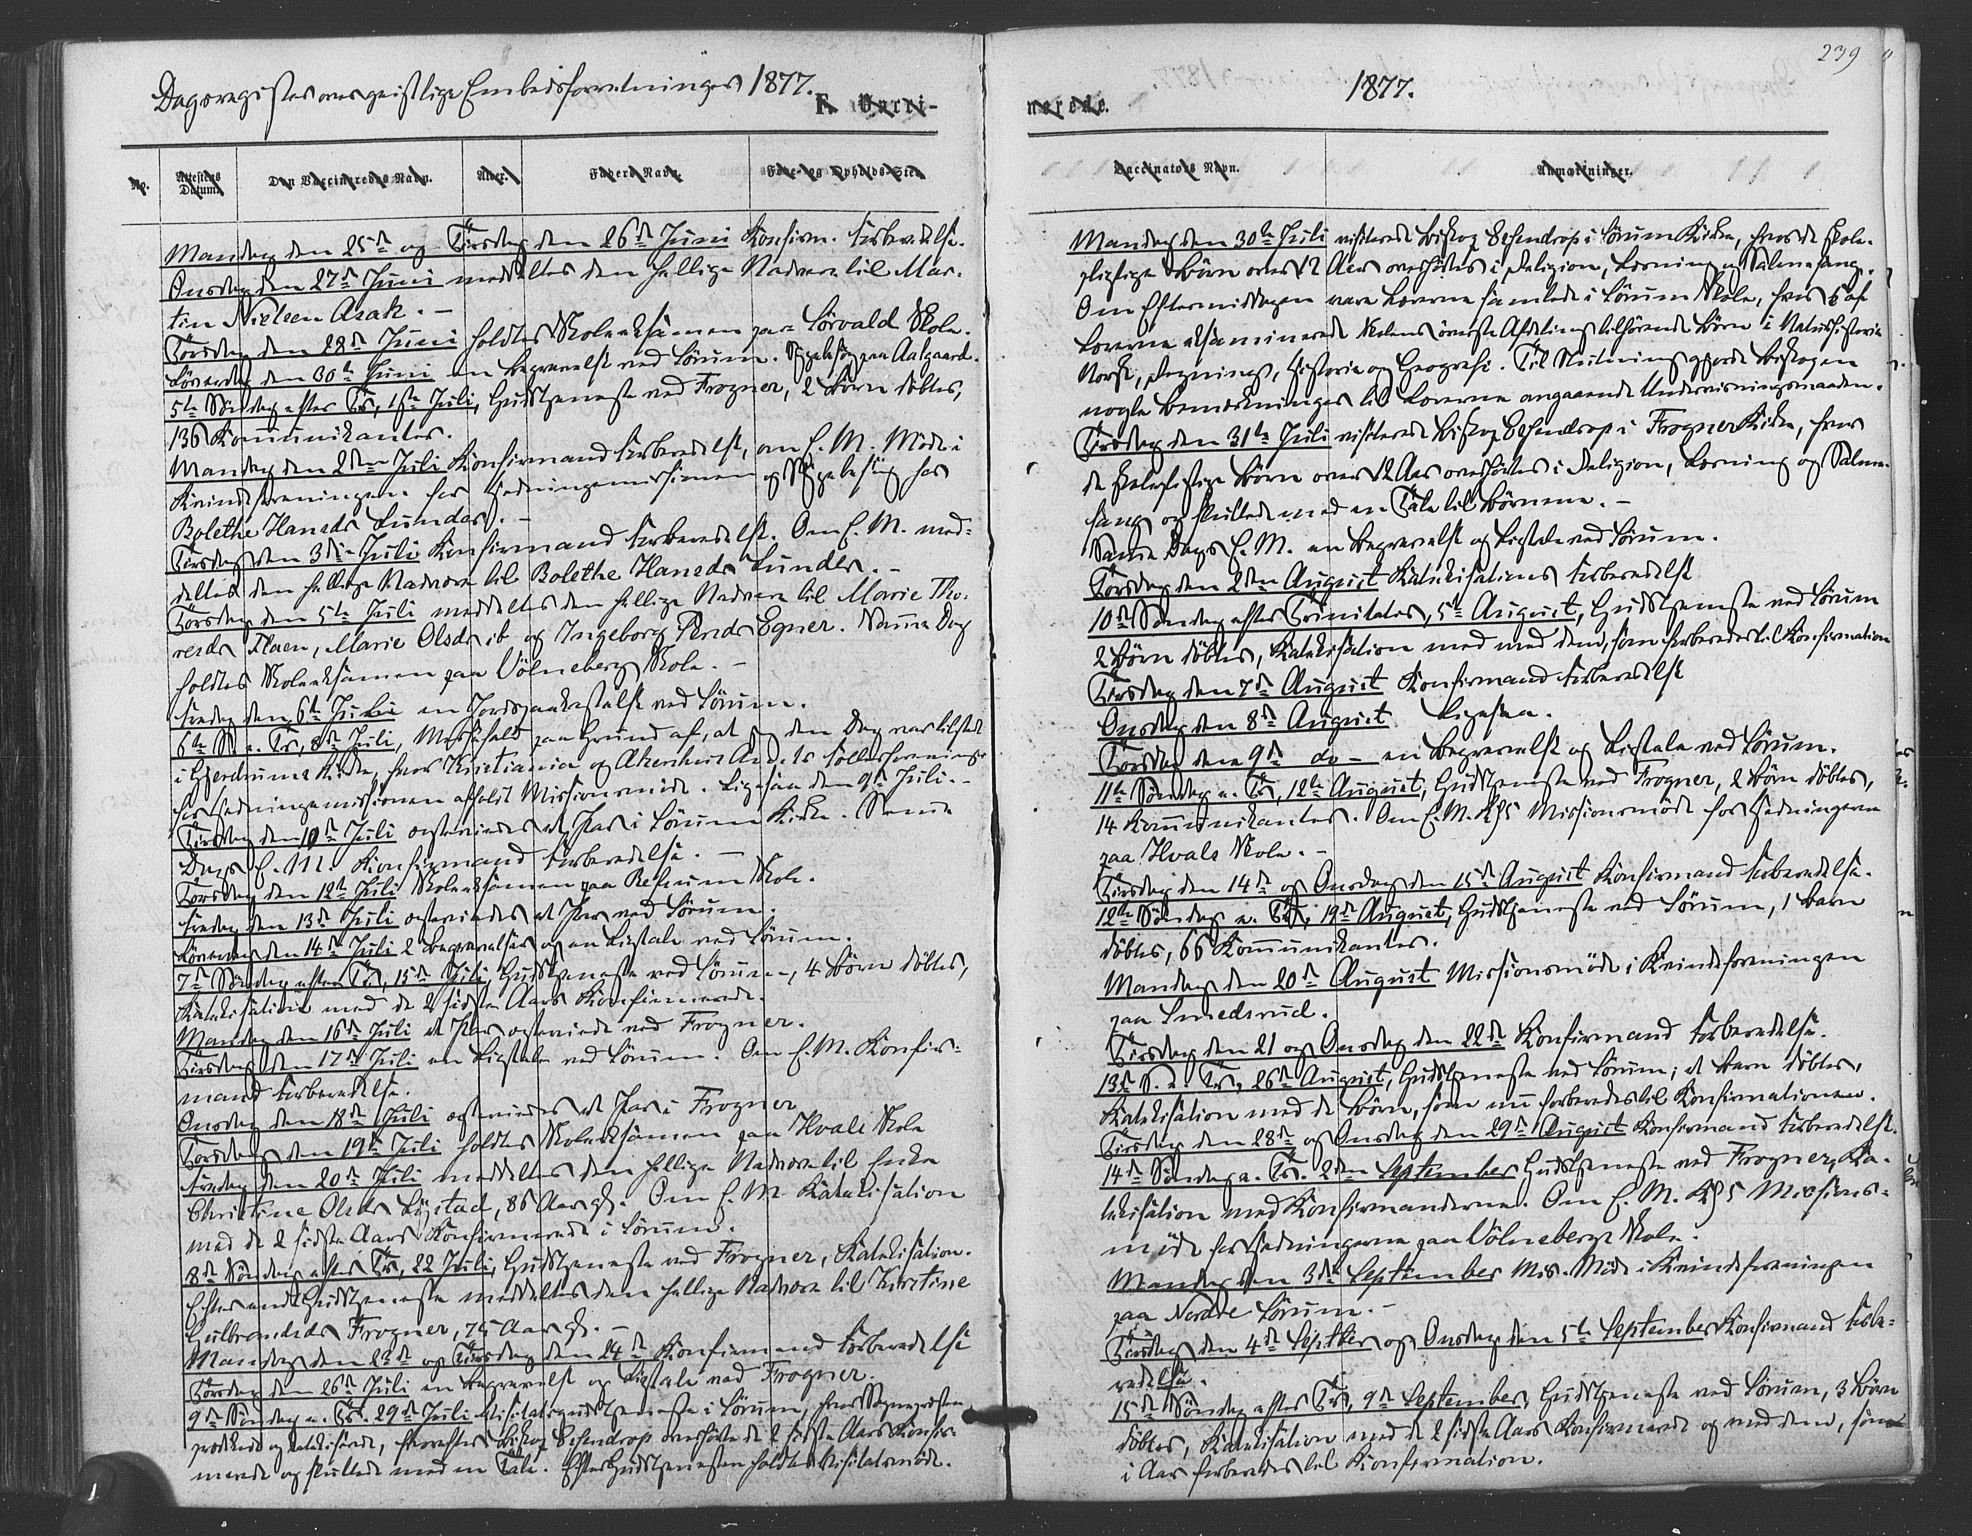 Dagsregister over geistlige Embedsforretninger 1877.
F. Vacci-
No.
Attestens Datum.
Den Vaccineredes Navn.
Alder.
Faders Navn.
Føde- og Opholds-Sted
Mandag den 25de og Tirsdag den 26de Juni Konfirm. Forberedelse.
Onsdag den 27de Juni meddeltes den hellige Nadvere til Mar-
tin Nielsen Asak. –
Torsdag den 28de Juni holdtes Skoleeksamen paa Sörvald Skole.
Löverdag den 30te Juni en Begravelse ved Sörum. Sygebesög paa Aalgaard.
5te Söndag efter Tr, 1ste Juli, Gudstjeneste ved Frogner, 2 Börn döbtes,
136 Kommunikanter.
Mandag den 2den Juli Konfirmand Forberedelse, om E. M. Möde i
Kvindeforeningen for Hedningemissionen og Sygebesög hos
Bolethe Hansdr Lunder. –
Tirsdag den 3die Juli Konfirmand Forberedelse. Om E. M. med-
deltes den hellige Nadvere til Bolethe Hansdr Lunder. –
Torsdag den 5te Juli meddeltes den hellige Nadvere til Marie Tho-
resdr Flaen, Marie Olsdr ib og Ingeborg Egner. Samme Dag
holdtes Skoleeksamen paa Völneberg Skole. –
Fredag den 6te Juli en Jordspaakastelse ved Sörum.
6te S. e. Tr, 8de Juli, Messefald paa Grund af, at jeg den Dag var tilstede
i Gjerdrums Kirke, hvor Kristiania og Akershus Amts Fællesforening
for Hedningemissionen afholdt Missionsmöde. Ligesaa den 9de Juli. –
Tirsdag den 10de Juli egteviedes et Par i Sörum Kirke. Samme
Dags E. M. Konfirmand Forberedelse. –
Torsdag den 12te Juli Skoleeksamen paa Refsum Skole.
Fredag den 13de Juli egteviedes et Par ved Sörum.
Löverdag den 14de Juli 2 Begravelser og en Ligtale ved Sörum.
7de Söndag efter Tr, 15de Juli, Gudstjeneste ved Sörum, 4 Börn döbtes,
Katekisation med de 2 sidste Aars Konfirmerede.
Mandag den 16de Juli et Par egteviede ved Frogner.
Tirsdag den 17de Juli en Ligtale ved Sörum. Om E. M. Konfir-
mand Forberedelse.
Onsdag den 18de Juli egteviedes et Par i Frogner
Torsdag den 19de Juli holdtes Skoleeksamen paa Hvals Skole
Fredag den 20de Juli meddeltes den hellige Nadvere til Enke
Christine Olsdr Lystad, 86 Aar gl. Om E. M. Katekisation
med de 2 sidste Aars Konfirmerede i Sörum.
8de Söndag efter Tr, 22 Juli, Gudstjeneste ved Frogner, Katekisation.
Efter endt Gudstjeneste meddeltes den hellige Nadvere til Kirstine
Gulbrandsdr Frogner, 75 Aar gl. –
Mandag den 23de og Tirsdag den 24de Konfirmand Forberedelse
Torsdag den 26de Juli en Begravelse og Ligtale ved Frogner.
9de Söndag e. Tr. 29de Juli Visitatsgudstjeneste i Sörum, hvor Sognepresten
prekede og katekiserede, hvorefter Biskop Essendrop overhörte de 2 sidste Aars Konfir-
merede og sluttede med en Tale. Efter Gudstjenesten holdtes Visitatsmöde.
239
1877.
nerede.
Vaccinators Navn.
Anmærkninger.
Mandag den 30te Juli visiterede Biskop Essendrop i Sörum Kirke, hvor de skole-
pligtige Börn over 12 Aar overhörtes i Religion, Læsning og Salmesang.
Om Eftermiddagen vare Lærerne samlede i Sörum Skole, hvor 5 af
Lærerne eksaminerede Skolens överste Afdeling tilhörende Börn i Naturhistorie
Norsk, Regning, Historie og Geografi. Til Slutning gjorde Biskopen
nogle Bemerkninger til Lærerne angaaende Undervisningsmaaden.
Tirsdag den 31te Juli visiterede Biskop Essendrop i Frogner Kirke, hvor
de skolepligtige Börn over 12 Aar overhörtes i Religion, Læsning og Salme-
sang og sluttede med en Tale til Börnene. –
Samme Dags E. M. en Begravelse og Ligtale ved Sörum.
Torsdag den 2den August Katekisations Forberedelse
10de Söndag efter Trinitatis, 5te August, Gudstjeneste ved Sörum
2 Börn döbtes, Katekisation med med dem, som forberedes til Konfirmation
Tirsdag den 7de August Konfirmand Forberedelse
Onsdag den 8de August Ligesaa.
Torsdag den 9de do – en Begravelse og Ligtale ved Sörum.
11te Söndag e. Tr, 12te August, Gudstjeneste ved Frogner, 2 Börn döbtes,
14 Kommunikanter. Om E. M. Kl 5 Missionsmöde for Hedningerne
paa Hvals Skole. –
Tirsdag den 14de og Onsdag den 15de August Konfirmand Forberedelse.
12te Söndag e. Tr, 19de August, Gudstjeneste ved Sörum, 1 Barn
döbtes, 66 Kommunikanter.
Mandag den 20de August Missionsmöde i Kvindeforeningen
paa Smedsrud.
Tirsdag den 21 og Onsdag den 22de Konfirmand Forberedelse.
13de S. e. Tr, 26de August, Gudstjeneste ved Sörum; et Barn döbtes,
Katekisation med de Börn, som nu forberedes til Konfirmationen.
Tirsdag den 28de og Onsdag den 29de August Konfirmand Forberedelse.
14de Söndag e. Tr. 2den September Gudstjeneste ved Frogner, Ka-
tekisation med Konfirmanderne. Om E. M. Kl 5 Missions-
möde for Hedningerne paa Völneberg Skole.
Mandag den 3die September Mis. Möde i Kvindeforeningen
paa Nordre Sörum. –
Tirsdag den 4de Septber og Onsdag den 5te September Konfirmand Forbe-
redelse.
15de Söndag efter Tr, 9de September, Gudstjeneste ved Sörum, 3 Börn
döbtes, Katekisation med de 2 sidste Aars Konfirmerede og med dem, som
i Aar forberedes til Konfirmation.